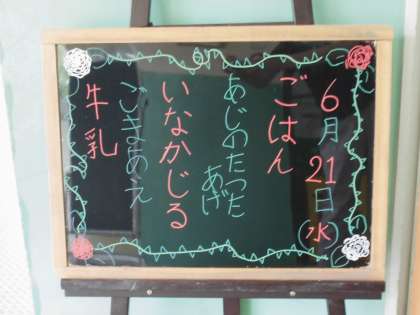 6月21日(水)
ごはん
あじのたつた
あげ
いなかじる
ごまあえ
牛乳